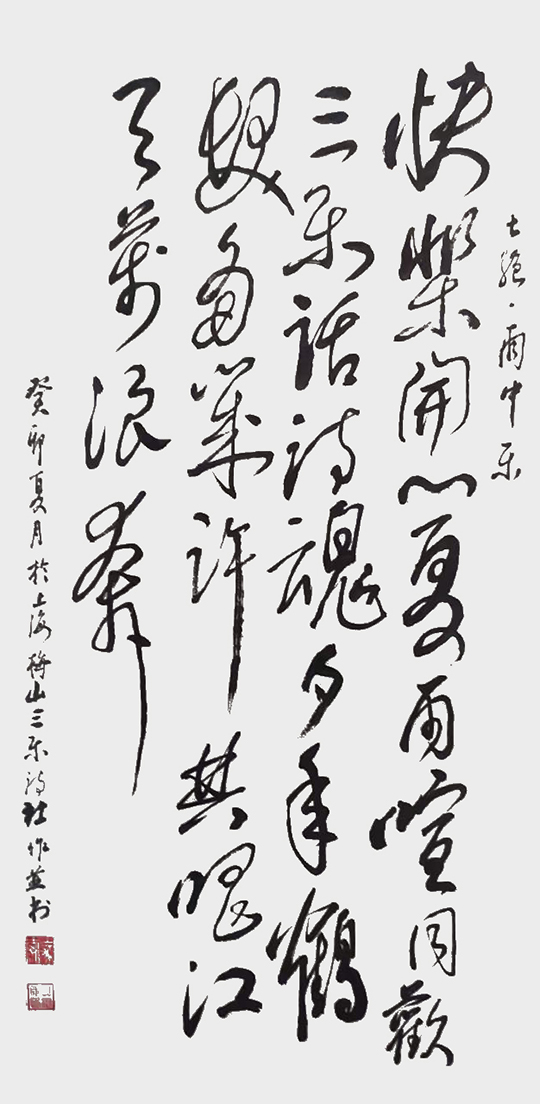 七絕·雨中乐
快樂開心夏雨喧同歡
三乐話詩魂夕年鶴
髮多幾許共唱江
天萬浪奔
癸卯夏月於上海梅山三乐詩社作並书